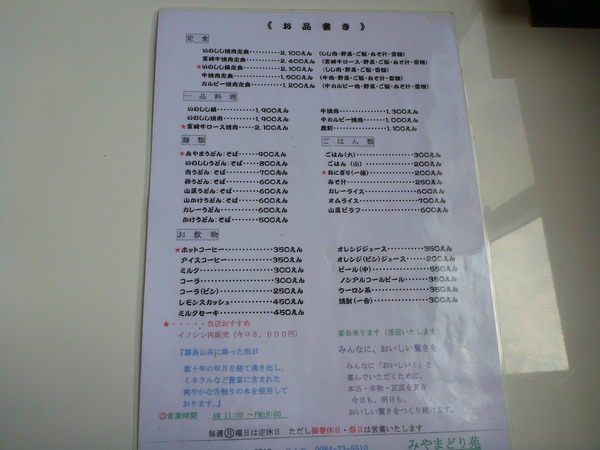 《 お 品 書 き 》
定 食
いのしし焼肉定食･･････････2,100えん (しし肉・野菜・ご飯・みそ汁・香物)
宮崎牛焼肉定食･･････････2,400えん (宮崎牛ロース・野菜・ご飯・みそ汁・香物)
★いのしし鍋定食･･････････2,100えん (しし肉・野菜・ご飯・香物)
牛焼肉定食･･････････1,500えん (牛肉・野菜・ご飯・みそ汁・香物)
カルビー焼肉定食･･････････1,200えん (牛カルビー肉・野菜・ご飯・みそ汁・香物)
一 品 料 理
いのしし鍋･･････････1,900えん
いのしし焼肉･･････････1,900えん
★宮崎牛ロース焼肉･････2,100えん
牛焼肉･･････････1,300えん
牛カルビー焼肉･･････････1,000えん
鹿刺･･････････1,100えん
麺 類
★みやまうどん:そば･････900えん
いのししうどん:そば･････800えん
肉うどん:そば･････700えん
卵うどん:そば･････600えん
山菜うどん:そば･････600えん
山かけうどん:そば･････600えん
カレーうどん･････600えん
かけうどん:そば･････500えん
ごはん 類
ごはん (大)･･････････300えん
ごはん (小)･･････････200えん
★おにぎり(一個)･･････････200えん
みそ汁･･････････250えん
カレーライス･･････････600えん
オムライス･･････････700えん
山菜ピラフ･･････････600えん
お 飲 物
★ホットコーヒー･･････････350えん
アイスコーヒー･･････････350えん
ミルク･･････････300えん
コーラ･･････････300えん
コーラ(ビン)･･････････250えん
レモンスカッシュ･･････････450えん
ミルクセーキ･･････････450えん
オレンジジュース･･････････350えん
オレンジ(ビン)ジュース･････200えん
ビール(中)･･････････550えん
ノンアルコールビール･････350えん
ウーロン茶･･････････350えん
焼酎(一合)･･････････300えん
★・・・・・当店おすすめ
イノシシ肉販売 (キロ5，000円)
『霧島山系に降った雨が
数十年の年月を経て湧き出し、
ミネラルなど豊富に含まれた
爽やかな舌触りの水を使用して
おります。』
宴会承ります (送迎いたします)
みんなに、おいしい驚きを
みんなに「おいしい！」と
喜んでいただくために、
本当・本物・正直を貫き
今日も、明日も、
おいしい驚きをつくり続けます。
◎営業時間 AM 11:00 ～PM18:00
毎週㊊曜日は定休日 ただし振替休日・祭日は営業いたします
みやまどり苑
0984-22-5510